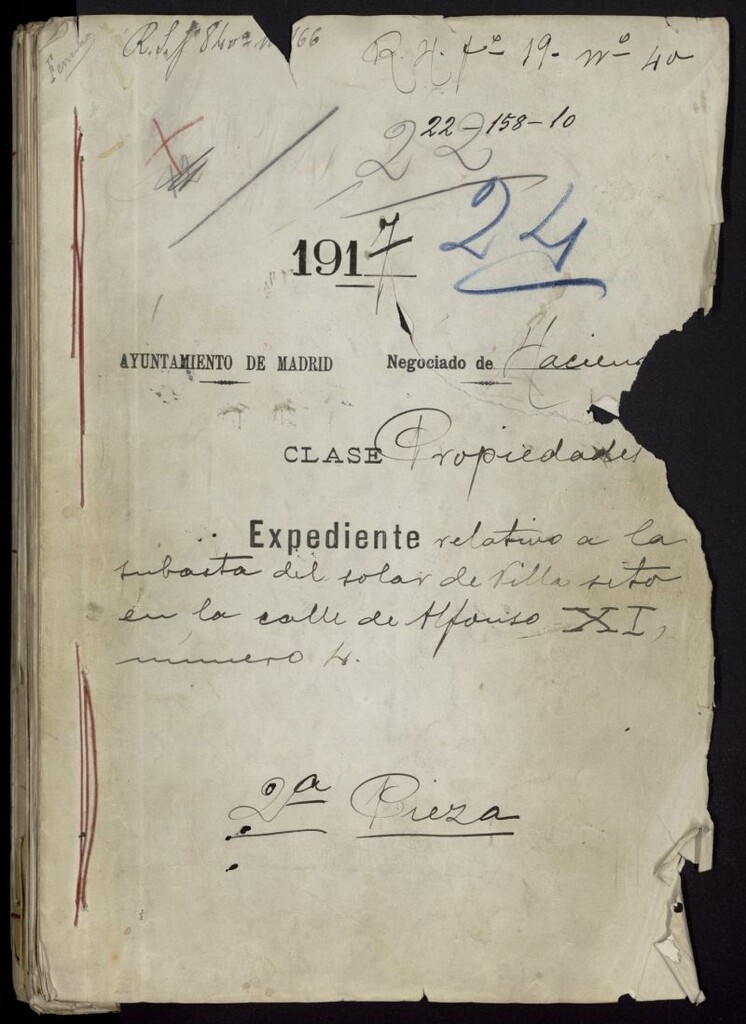 R. H. fº 19- nº 40
22-158-10
22
24
1917
AYUNTAMIENTO DE MADRID Negociado de Hacien
CLASE Propiedades
Expediente relativo a la
subasta del solar de Villa sito
en la calle de Alfonso XI,
número 4.
2ª Pieza